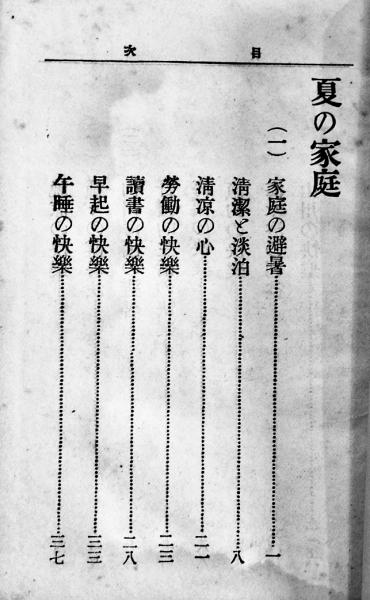 目次
夏の家庭
(一)
家庭の避暑……一
清潔と淡泊……八
清凉の心……二一
勞働の快樂……二三
讀書の快樂……二八
早起の快樂……三三
午睡の快樂……三七